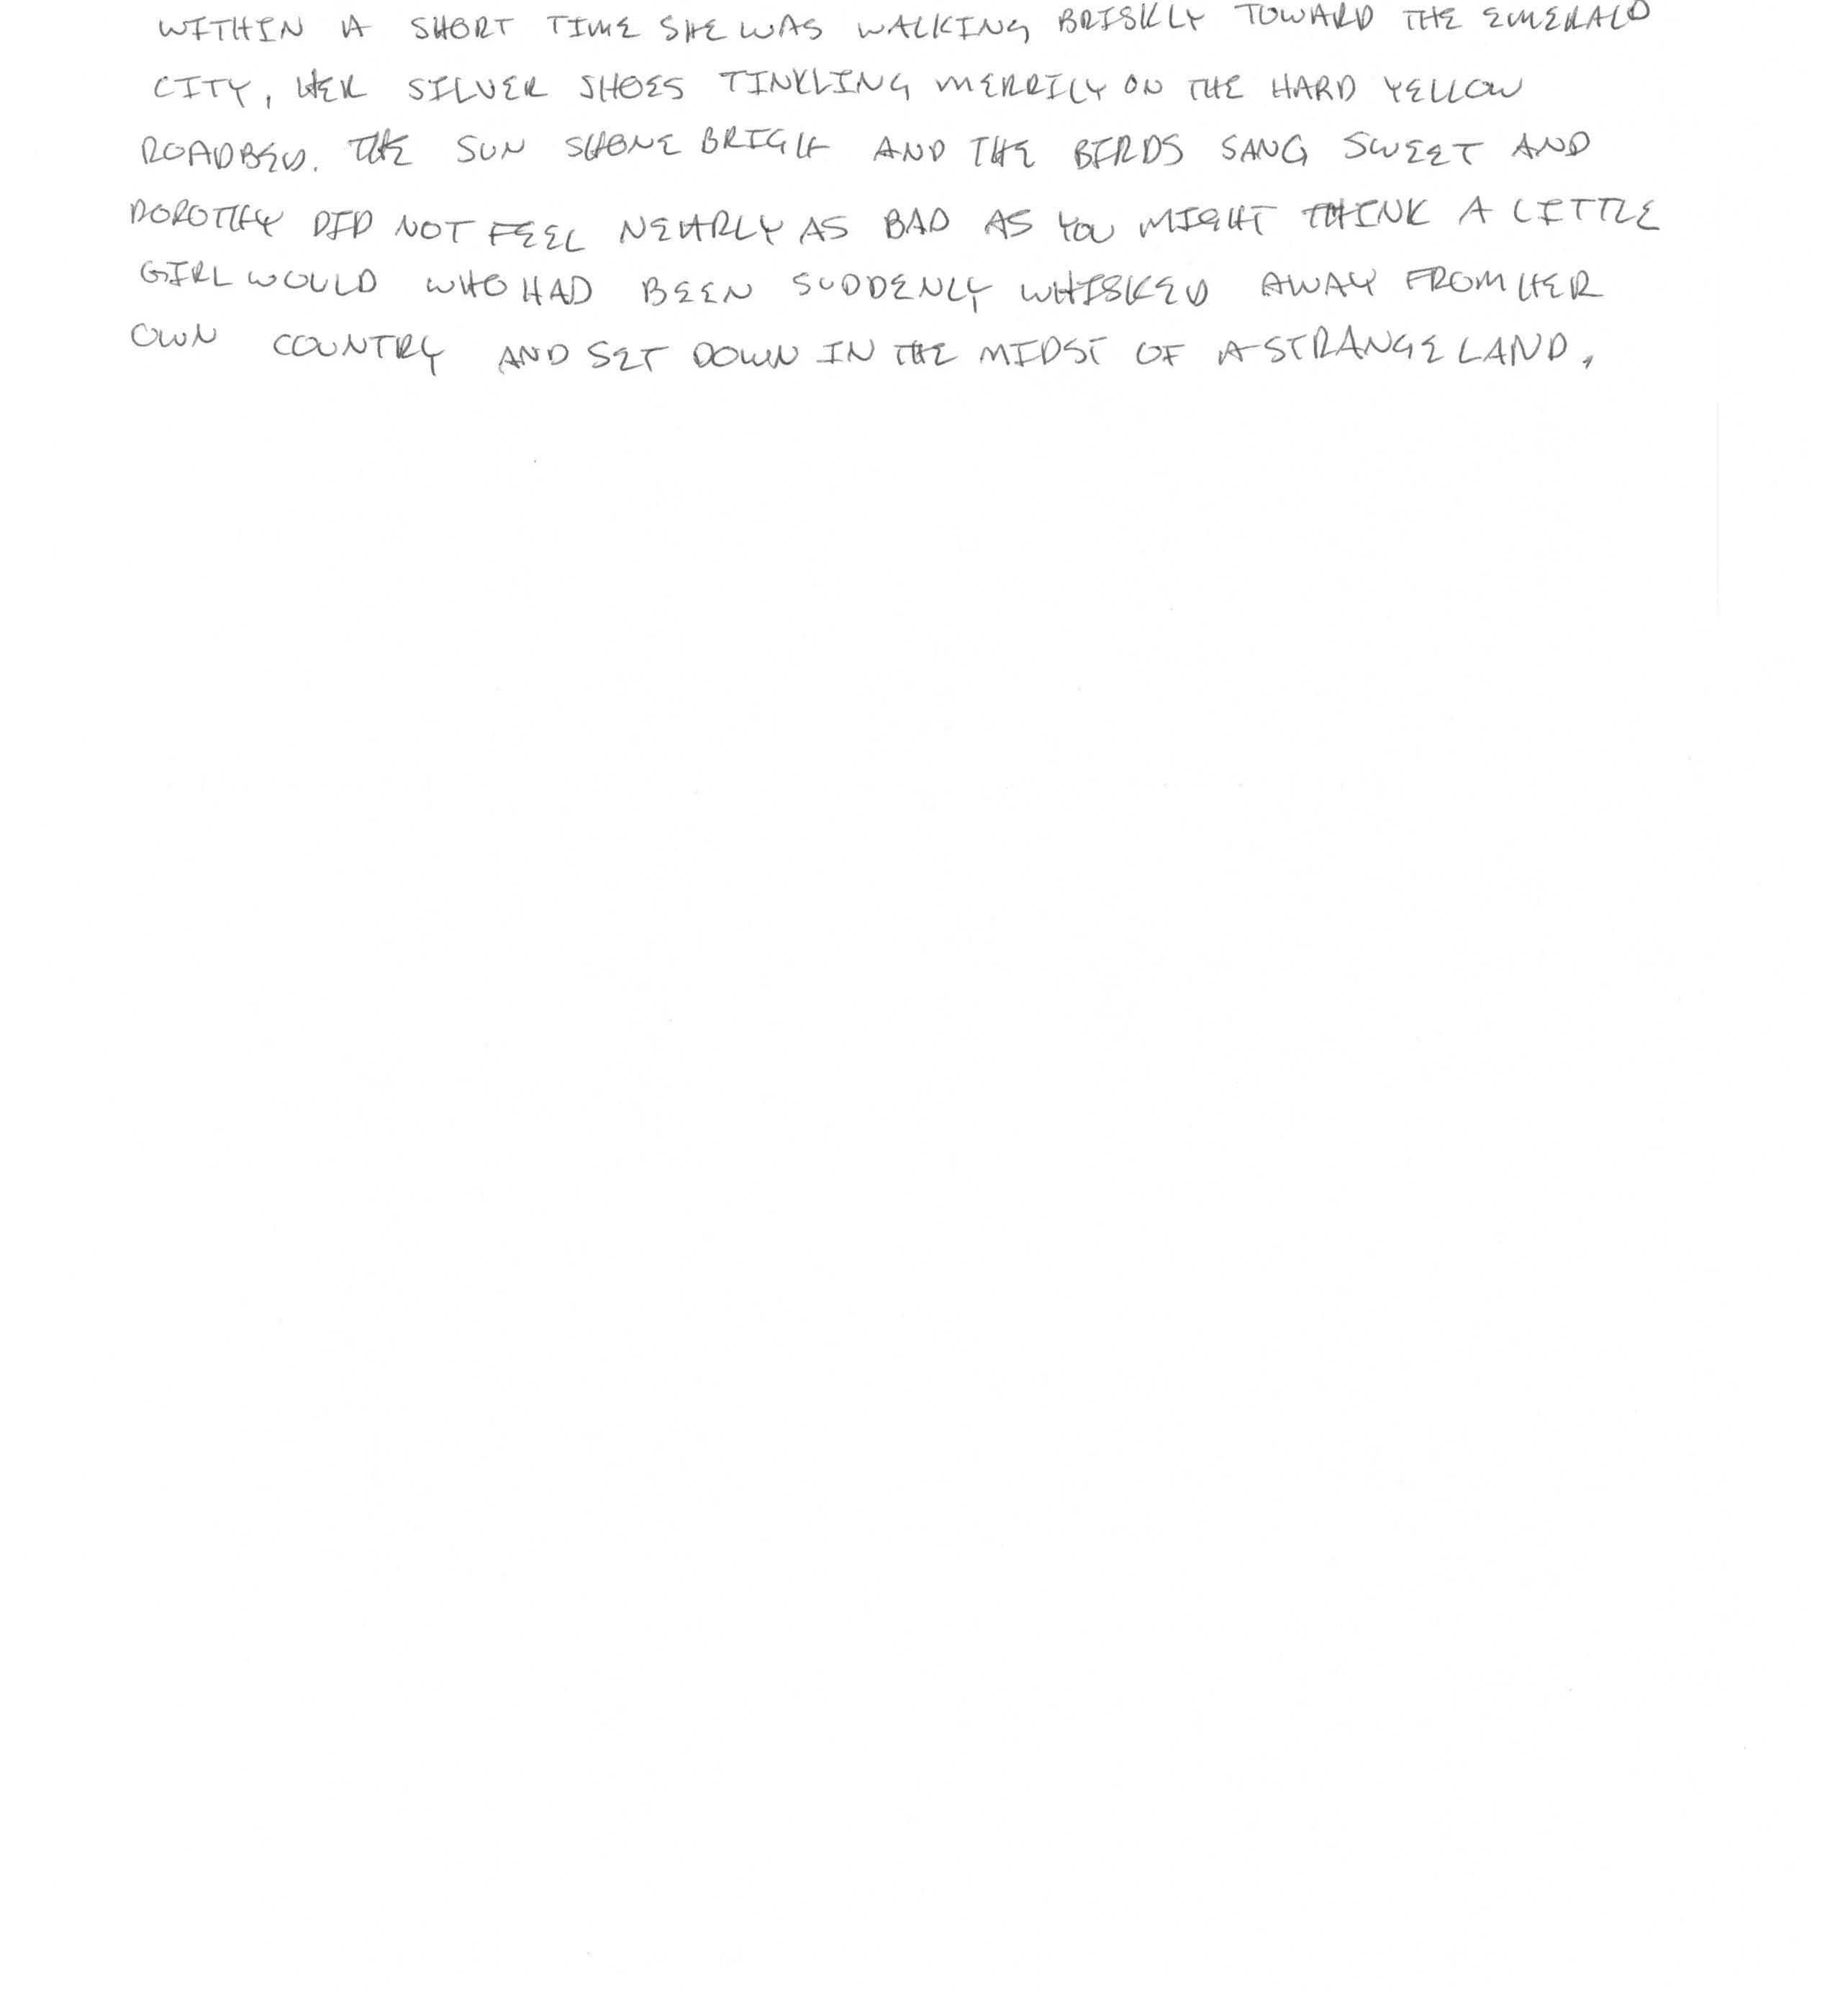 WITHIN A SHORT TIME SHE WAS WALKING BRISKLY TOWARD THE EMERALD
CITY, HER SILVER SHOES TINKLING MERRILY ON THE HARD YELLOW
ROADBED. THE SUN SHONE BRIGH AND THE BIRDS SANG SWEET AND
DOROTHY DID NOT FEEL NEARLY AS BAD AS YOU MIGHT THINK A LITTLE
GIRL WOULD WHO HAD BEEN SUDDENLY WHISKED AWAY FROM HER
OWN COUNTRY AND SET DOWN IN THE MIDST OF A STRANGE LAND.